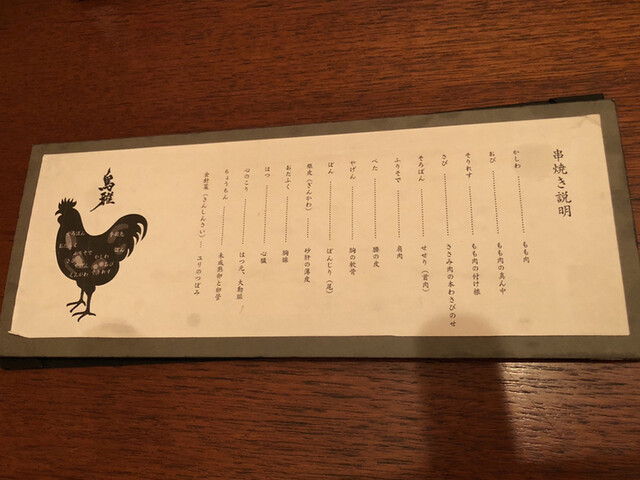 串焼き説明
かしわ………もも肉
おび………もも肉の真ん中
そりれす………もも肉の付け根
さび………ささみ肉の本わさびのせ
そろばん………せせり（首肉）
ふりそで………肩肉
ぺた………腰の皮
やげん………胸の軟骨
ぼん………ぼんじり（尾）
銀皮（ぎんかわ）…砂肝の薄皮
おたふく………胸腺
はつ………心臓
心のこり………はつ元、大動脈
ちょうもん………未成熟卵と卵管
金針菜（きんしんさい）…ユリのつぼみ
鳥雅
そろばん
おたふく
ふりそで
かしわ
ぎんかわ